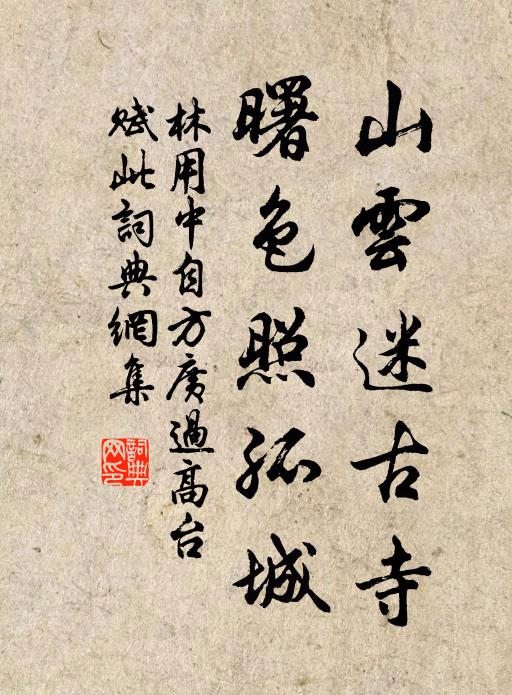 山雲迷古寺
曙色照孤城
林用中自方广過高台
賦此詞典網集
詞典网印